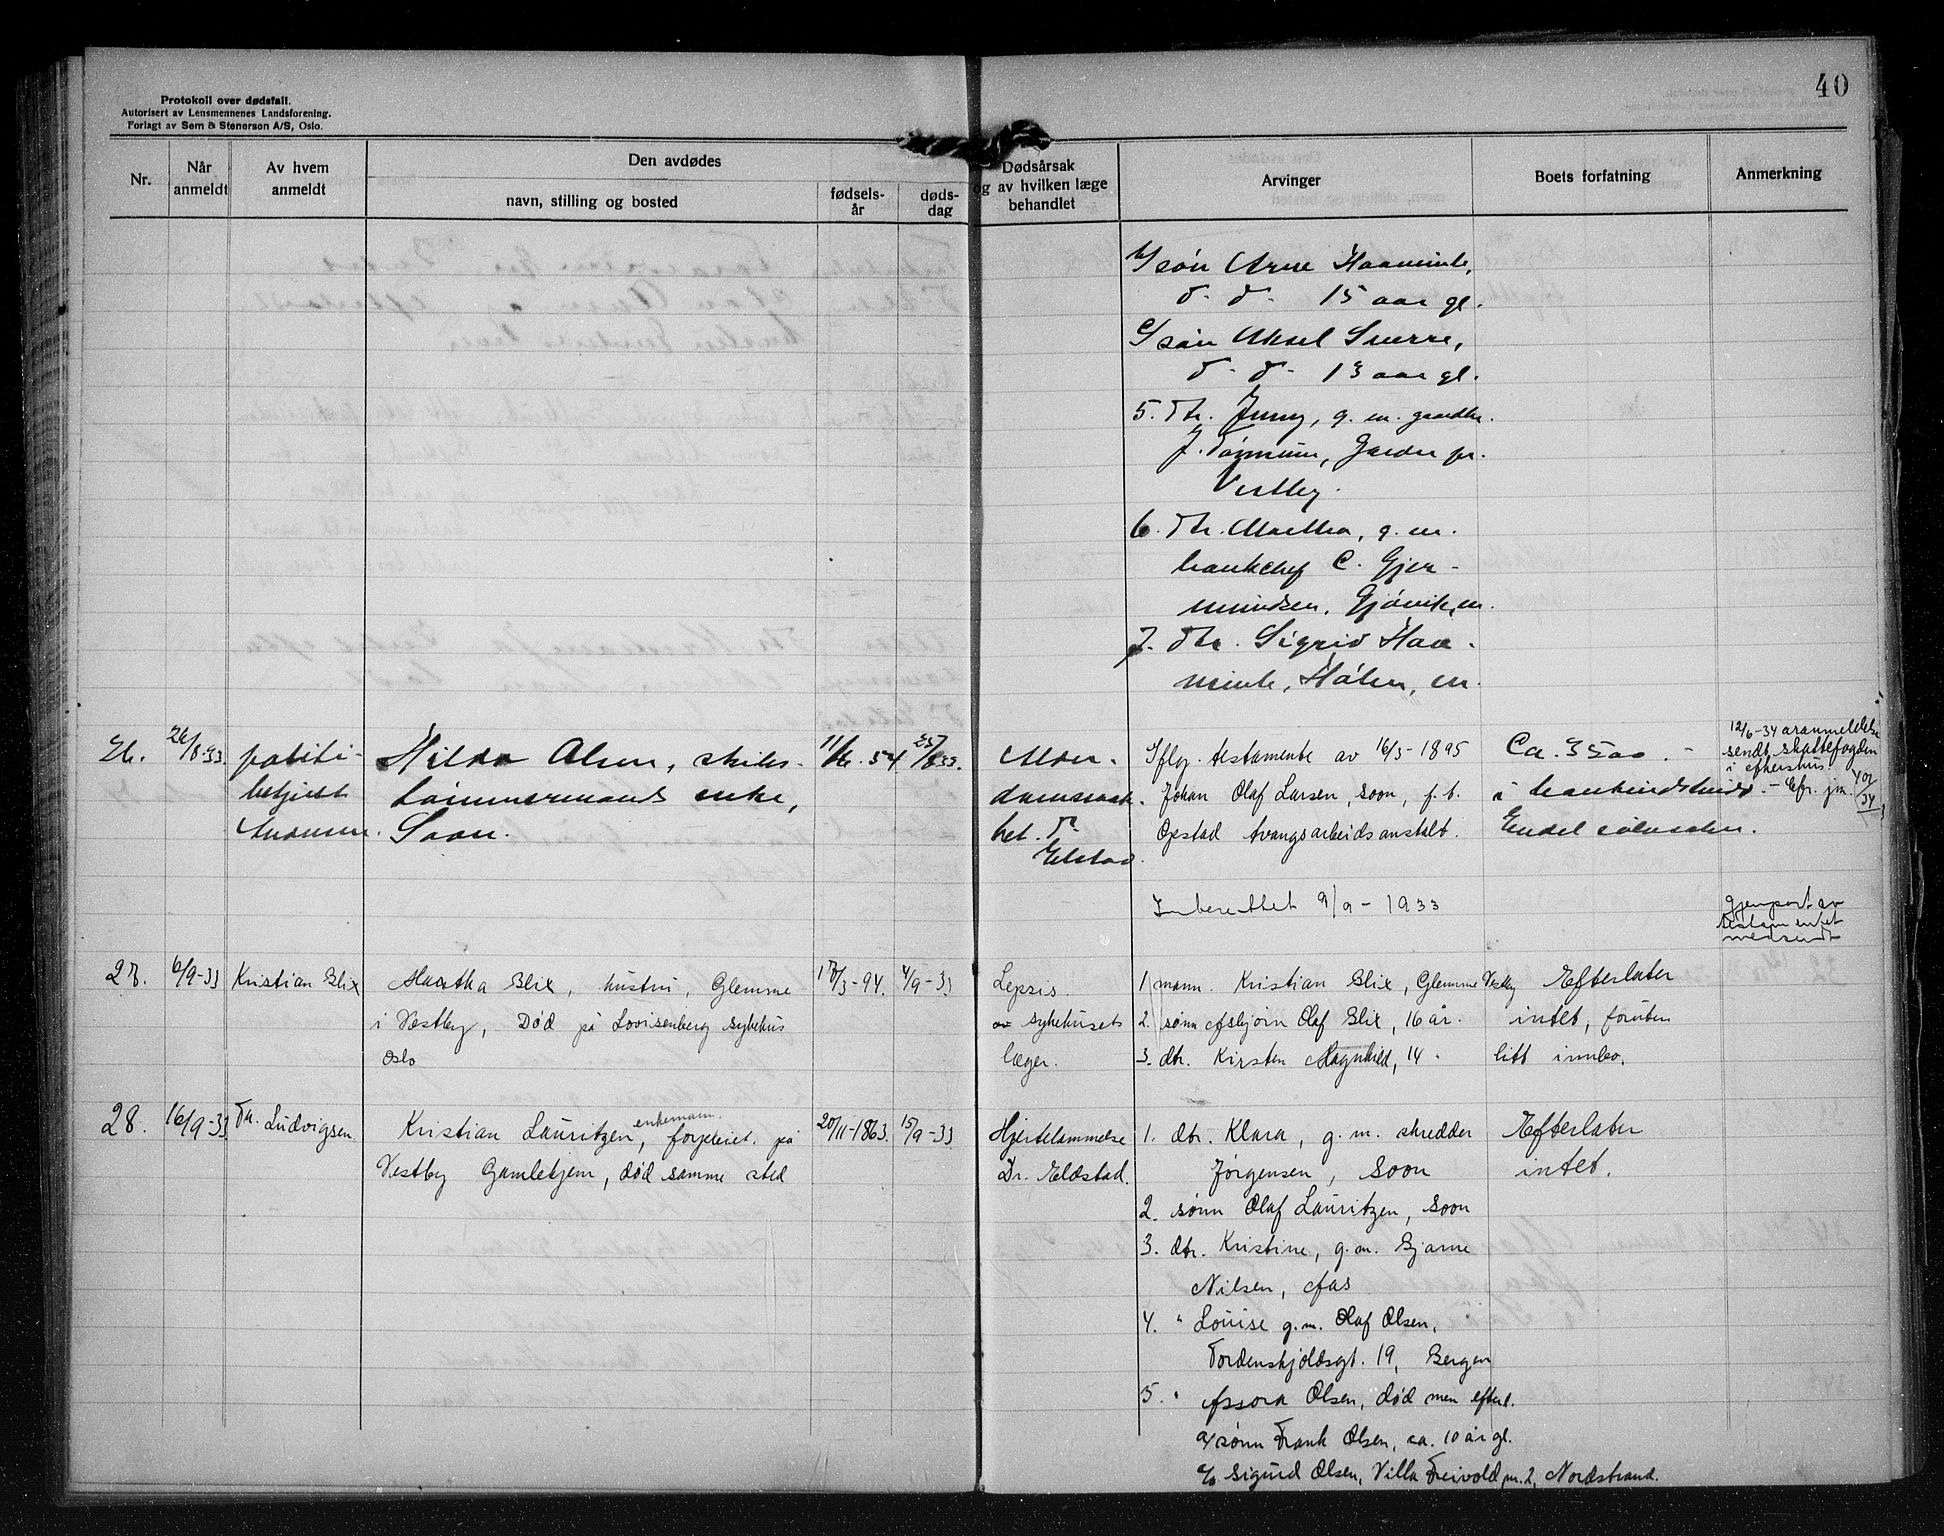 40
Protokoll over dødsfall.
Autorisert av Lensmennenes Landsforening.
Forlagt av Sem & Stenersen A/S, Oslo.
Nr.
Når anmeldt
Av hvem anmeldt
Den avdødes
navn, stilling og bosted
fødsels-år
døds-dag
Dødsårsak
og av hvilken læge
behandlet
Arvinger
Boets forfatning
Anmerkning
b/ søn Arne Haaminte,
d. d. 15 aar gl.
c/ søn Aksel Sverre,
d. d. 13 aar gl.
5. dtr. Jenny, g. m. gaardbr.
J. Garder pr.
Vestby.
6. dtr. Martha, g. m.
bankchef C. Gjer-
mundsen, Gjøvik, m.
7. dtr. Sigrid Haa-
Hølen, m.
26. 26/8-33 politi-
betjent
Hilda Olsen, skibs-
tømmermands enke,
Soon.
54 25/8 33.
Alder-
domssvakh.
het. Dr.
Elstad.
Iflg. testamente av 16/3-1895
Johan Olaf Larsen, Soon, f. t.
Opstad tvangsarbeidsanstalt.
Ca. 3500.-
i bankindskudd.
Endel
12/6-34
sendt skattefogden
i Akershus.
- Cfr. jnr.
Inberettet 9/9-1933
gjenpart av
testamentet
medsendt
27. 6/9-33 Kristian Blix
Martha Blix, hustru, Glemme
i Vestby, Død på Lovisenberg sykehus
Oslo
17/3-94. 4/9-33
Lepsis.
av sykehusets
læger.
1 mann. Kristian Blix, Glemme Vestby
2. sønn Asbjørn Olaf Blix, 16 år.
3. dtr. Kirsten Magnhild, 14 -
Efterlater
intet, foruten
litt innbo.
28. 16/9-33 Fa. Ludvigsen
Kristian Lauritzen, enkemann. forpleiet på
Vestby Gamlehjem, død samme sted
20/11-1863. 15/9-33
Hjertelammelse
Dr. Eldstad.
1. dtr. Klara, g. m. skredder
Jørgensen, Soon
2. sønn Olaf Lauritzen, Soon
3. dtr. Kristine, g. m. Bjarne
Nilsen, Aas
4. " Louise g. m. Olaf Olsen,
Tordenskjoldsgt. 19, Bergen
5. " Assora Olsen, død men efterl.
a/ sønn Frank Olsen, ca. 10 år gl.
c/o Sigurd Olsen, Villa Freivold, m. 2, Nordstrand.
Efterlater
intet.